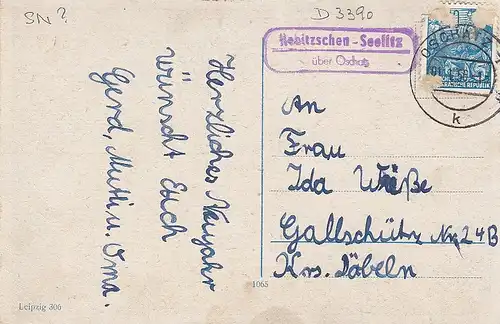 SN?
D 3390
Rebitzschen-Seelitz
über Oschatz
OSCHATZ
k
Herzliches Neujahr
wünscht Euch
Gerd, Mutti u. Oma.
An
Frau
Ida Weiße
Gallschütz Nr. 24B
Krs. Döbeln
Leipzig 306
1065